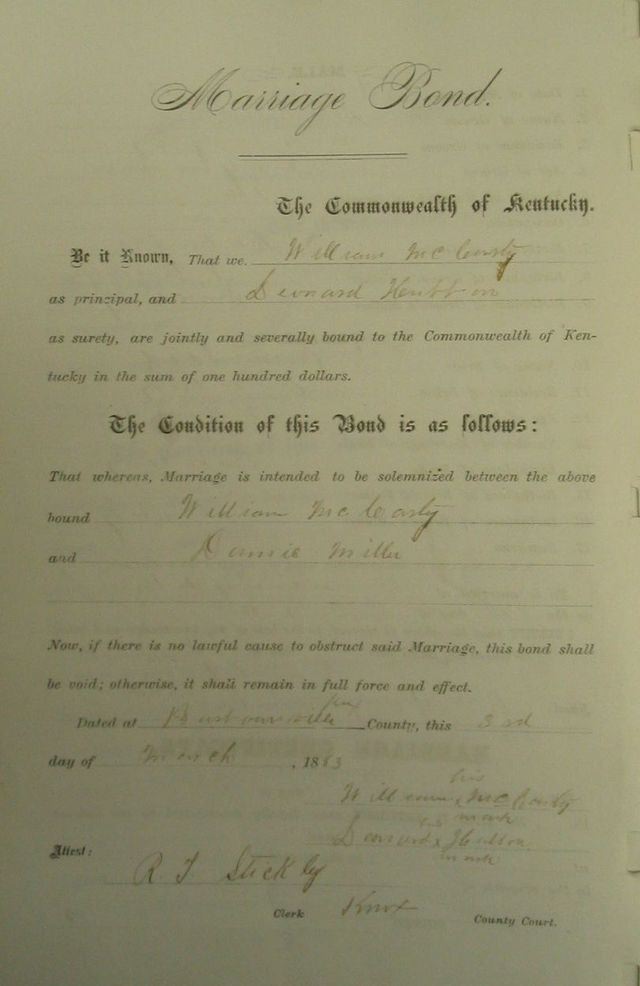 Marriage Bond.
The Commonwealth of Kentucky.
Be it Known, That we William McCarty
as principal, and Leonard
as surety, are jointly and severally bound to the Commonwealth of Ken-
tucky in the sum of one hundred dollars.
The Condition of this Bond is as follows:
That whereas, Marriage is intended to be solemnized between the above
bound William McCarty
and Miller
Now, if there is no lawful cause to obstruct said Marriage, this bond shall
be void; otherwise, it shall remain in full force and effect.
Dated at Knox County, this 3rd
day of March, 1883
his
William x McCarty
mark
his
Leonard x
mark
Attest:
R. T. Stickly
Clerk Knox County Court.